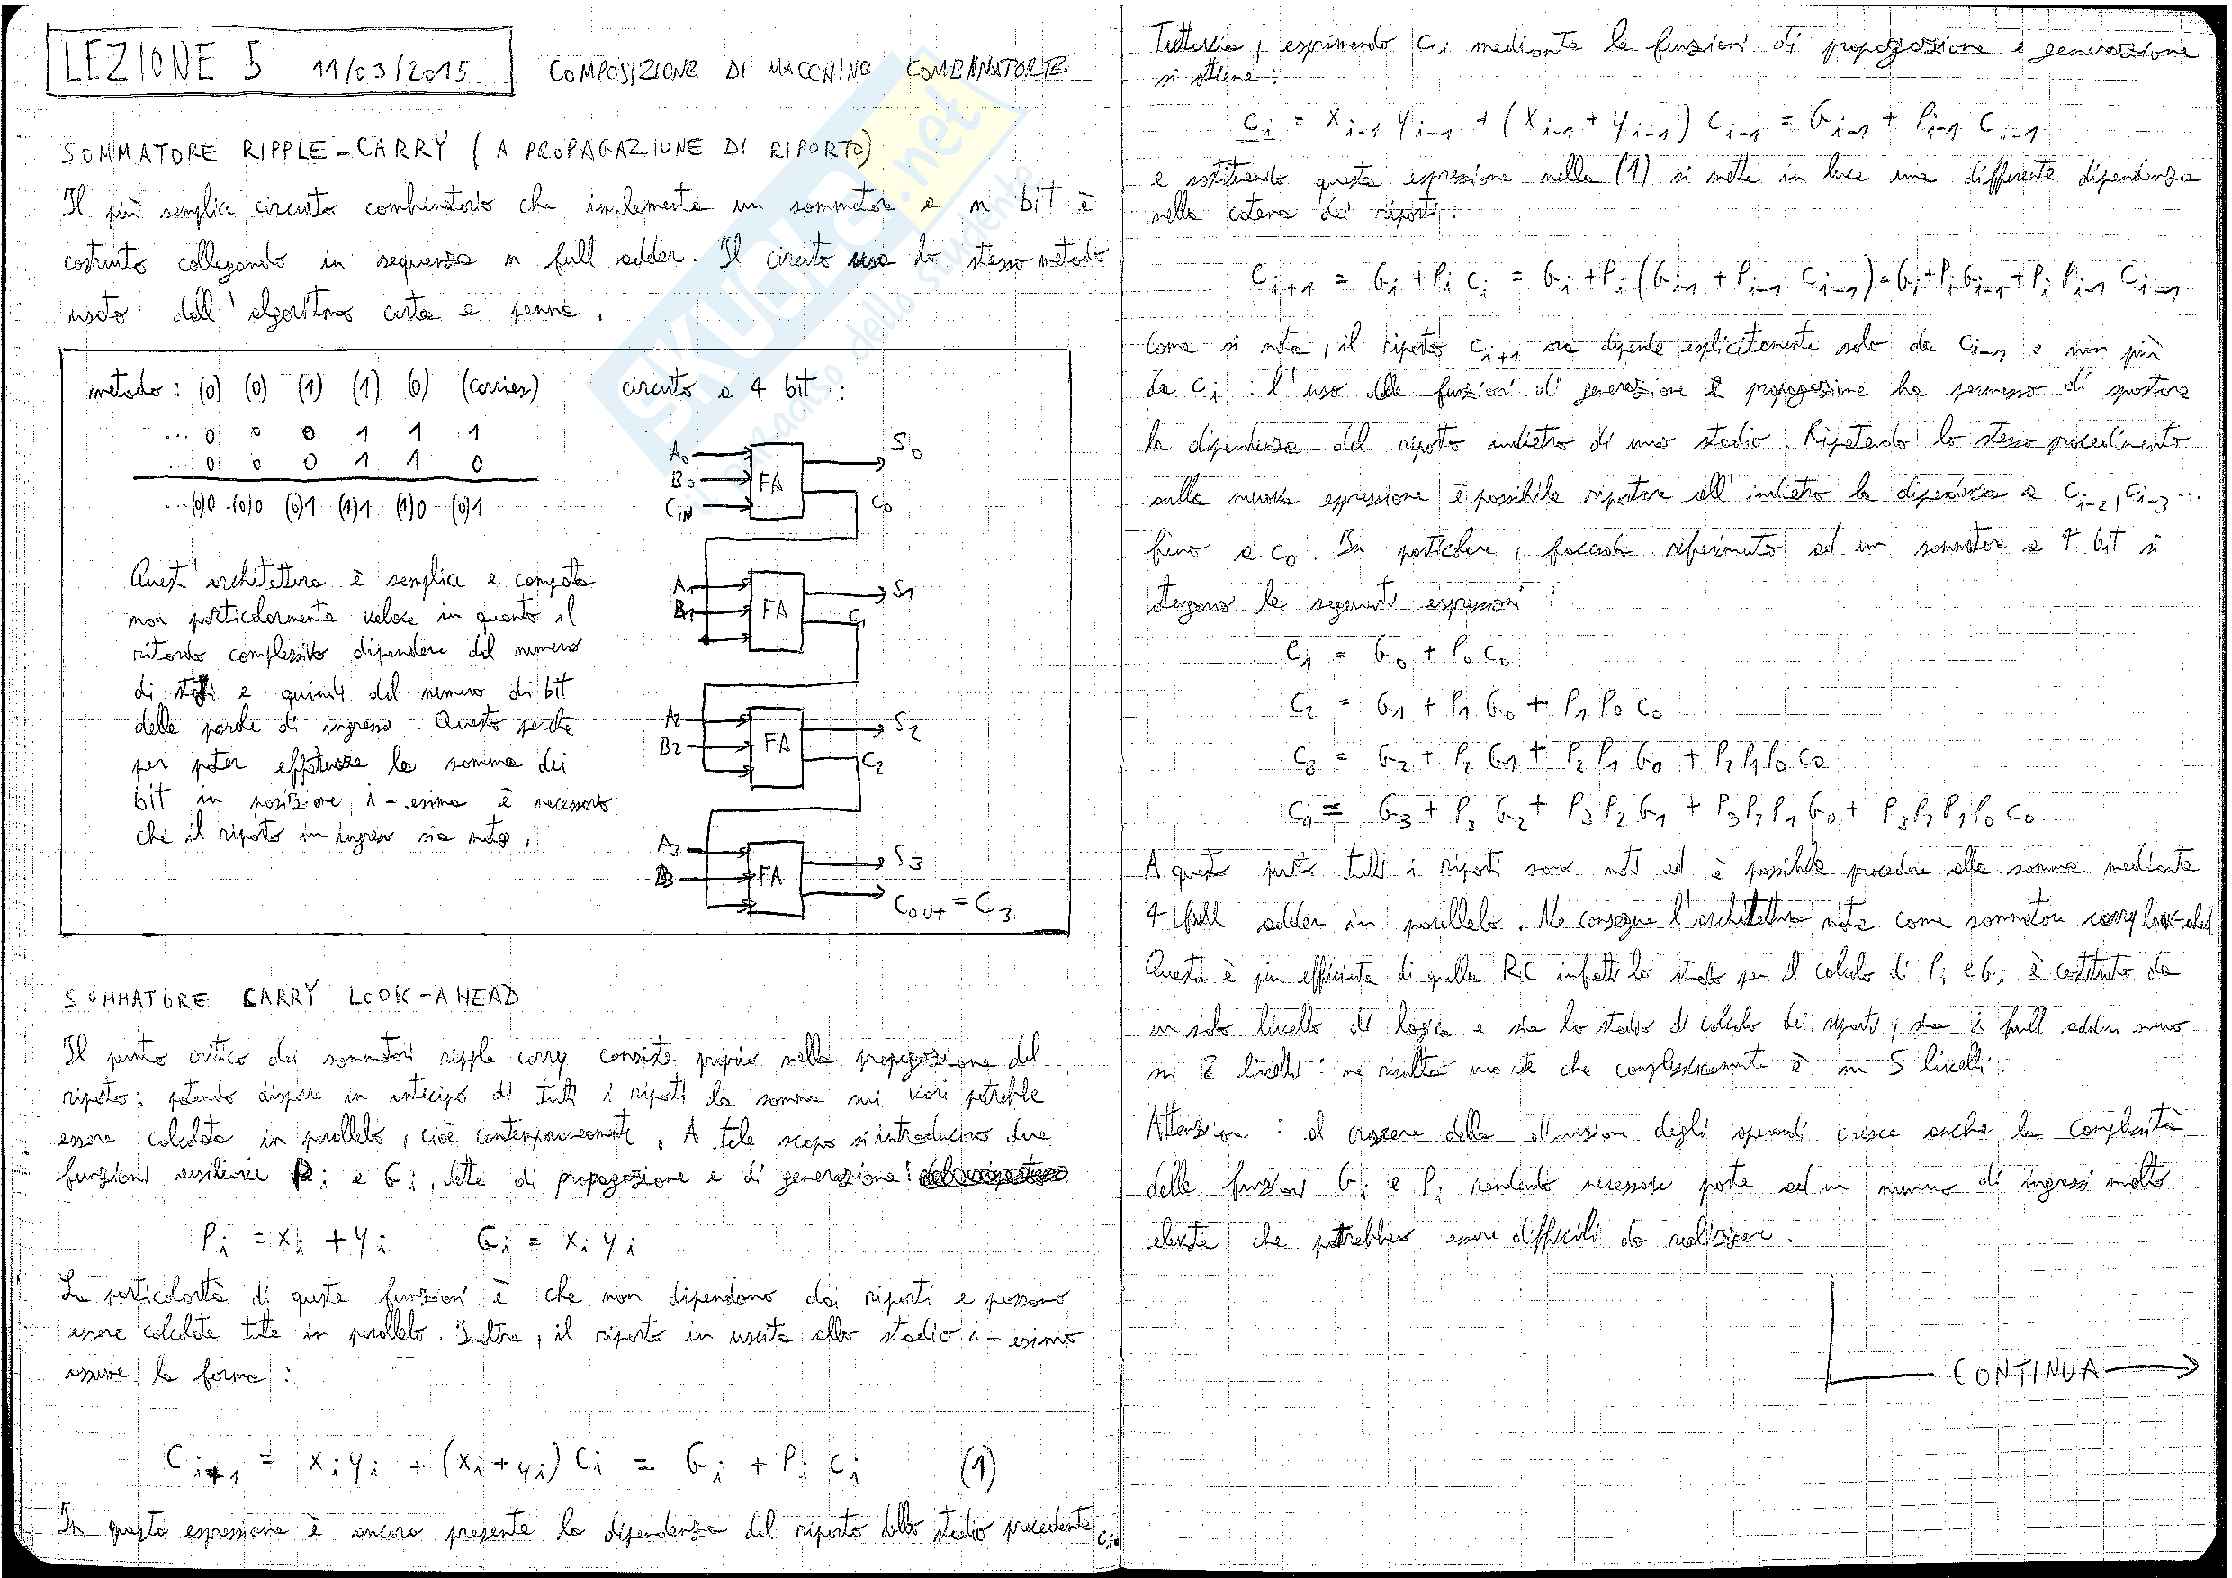 LEZIONE 5 11/03/2015
COMPOSIZIONE DI MACCHINE COMBINATORIE
SOMMATORE RIPPLE-CARRY (A PROPAGAZIONE DI RIPORTO)
Il più semplice circuito combinatorio che implementa un sommatore a n bit è
costruito collegando in sequenza n full adder. Il circuito usa lo stesso metodo
usato dell'algoritmo carta e penna.
metodo: (0) (0) (1) (1) (0) (carries)
... 0 0 0 1 1 1
... 0 0 0 1 1 0
... (0)0 (0)0 (0)1 (1)1 (1)0 (0)1
Quest'architettura è semplice e compatta
non particolarmente veloce in quanto il
ritardo complessivo dipendere del numero
di stadi e quindi del numero di bit
delle parole di ingresso. Questo perché
per poter effettuare la somma dei
bit in posizione i-esima è necessario
che il riporto in ingresso sia noto.
circuito a 4 bit:
A0 B0 CIN FA S0 C0
A1 B1 FA S1 C1
A2 B2 FA S2 C2
A3 B3 FA S3 COUT = C3
SOMMATORE CARRY LOOK-AHEAD
Il punto critico dei sommatori ripple carry consiste proprio nella propagazione del
riporto: potendo disporre in anticipo di tutti i riporti la somma sui vari potrebbe
essere calcolata in parallelo, cioè contemporaneamente. A tale scopo si introducono due
funzioni ausiliarie Pi e Gi, dette di propagazione e di generazione:
Pi = xi + yi Gi = xi yi
La particolarità di queste funzioni è che non dipendono dai riporti e possono
essere calcolate tutte in parallelo. Inoltre, il riporto in uscita allo stadio i-esimo
assume la forma:
Ci+1 = xi yi + (xi + yi) Ci = Gi + Pi Ci (1)
In questa espressione è ancora presente la dipendenza dal riporto dello stadio precedente, Ci.
Tuttavia, esprimendo Ci mediante le funzioni di propagazione e generazione
si ottiene:
Ci = xi-1 yi-1 + (xi-1 + yi-1) Ci-1 = Gi-1 + Pi-1 Ci-1
e sostituendo questa espressione nella (1) si mette in luce una differente dipendenza
nella catena dei riporti:
Ci+1 = Gi + Pi Ci = Gi + Pi (Gi-1 + Pi-1 Ci-1) = Gi + Pi Gi-1 + Pi Pi-1 Ci-1
Come si nota, il riporto Ci+1 ora dipende esplicitamente solo da Ci-1 e non più
da Ci: l'uso delle funzioni di generazione e propagazione ha permesso di spostare
la dipendenza del riporto indietro di uno stadio. Ripetendo lo stesso procedimento
sulla nuova espressione è possibile riportare all'indietro la dipendenza a Ci-2, Ci-3 ...
fino a C0. In particolare, facendo riferimento ad un sommatore a 4 bit si
ottengono le seguenti espressioni:
C1 = G0 + P0 C0
C2 = G1 + P1 G0 + P1 P0 C0
C3 = G2 + P2 G1 + P2 P1 G0 + P2 P1 P0 C0
C4 = G3 + P3 G2 + P3 P2 G1 + P3 P2 P1 G0 + P3 P2 P1 P0 C0
A questo punto tutti i riporti sono noti ed è possibile procedere alla somma mediante
4 full adder in parallelo. Ne consegue l'architettura nota come sommatore carry look-ahead
Questa è più efficiente di quella RC infatti lo stadio per il calcolo di Pi e Gi è costituito da
un solo livello di logica e sia lo stadio di calcolo dei riporti, sia i full adder sono
su 2 livelli: ne risulta una rete che complessivamente è in 5 livelli.
Attenzione: al crescere della dimensione degli operandi cresce anche la complessità
delle funzioni Gi e Pi rendendo necessarie porte ad un numero di ingressi molto
elevato che potrebbero essere difficili da realizzare.
CONTINUA